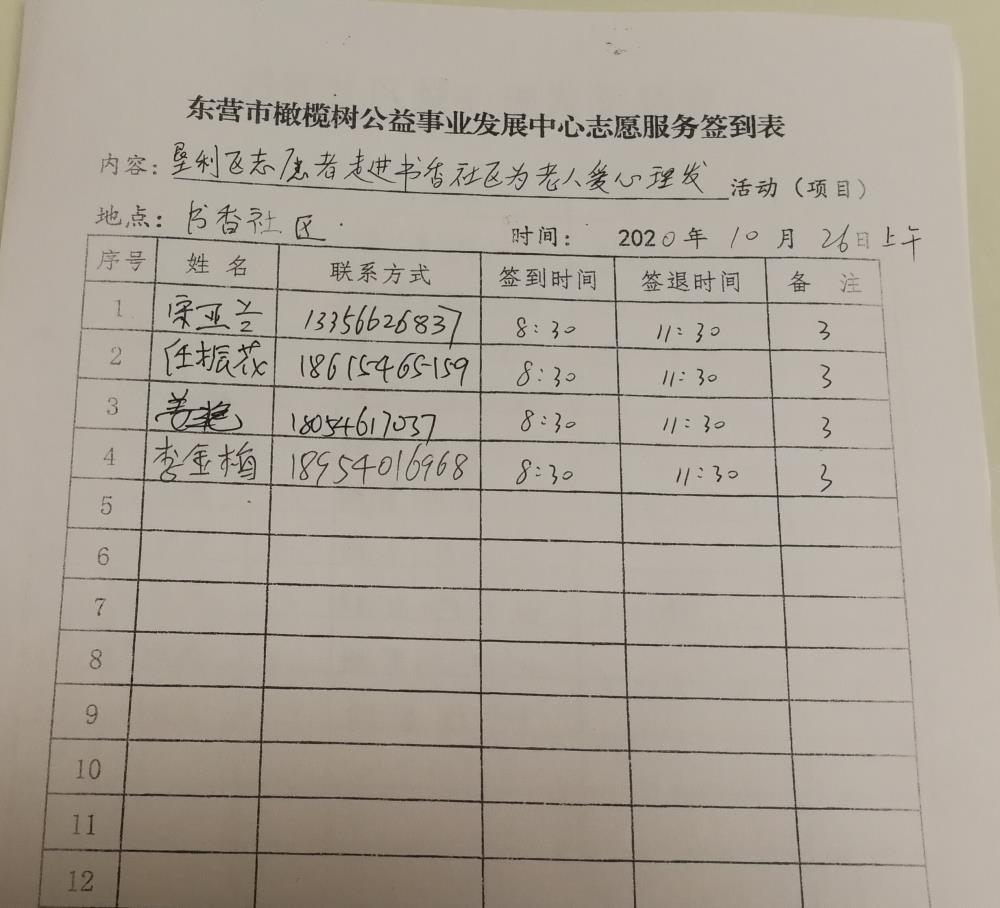 东营市橄榄树公益事业发展中心志愿服务签到表
内容：垦利区志愿者走进书香社区为老人爱心理发 活动（项目）
地点：书香社区 时间： 2020年 10月 26日上午
序号 姓名 联系方式 签到时间 签退时间 备注
1 宋亚兰 13356626837 8:30 11:30 3
2 任振花 18615465159 8:30 11:30 3
3 18054617037 8:30 11:30 3
4 李金梅 18954016968 8:30 11:30 3
5
6
7
8
9
10
11
12